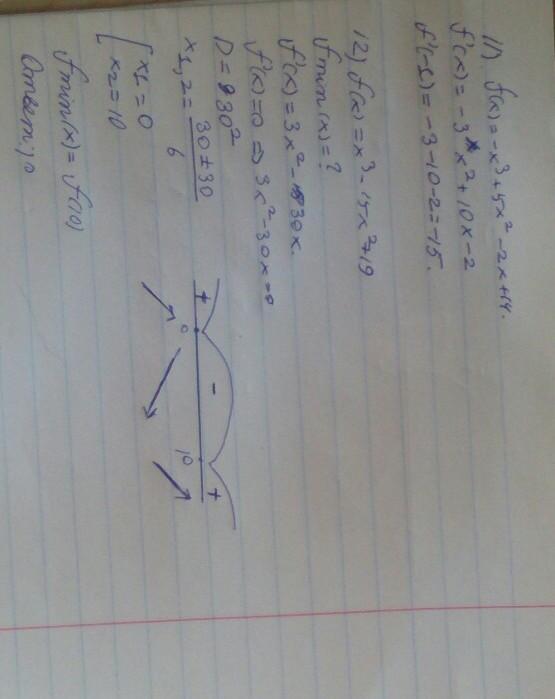 11) f(x) = -x³ + 5x² - 2x + 14.
f'(x) = -3x² + 10x - 2
f'(-1) = -3 - 10 - 2 = -15.
12) f(x) = x³ - 15x² + 19
fmin(x) = ?
f'(x) = 3x² - 30x.
f'(x) = 0 => 3x² - 30x = 0
D = 30²
x1,2 = (30 ± 30) / 6
[ x1 = 0
x2 = 10
+ - +
0 10
fmin(x) = f(10)
Ответ: 10